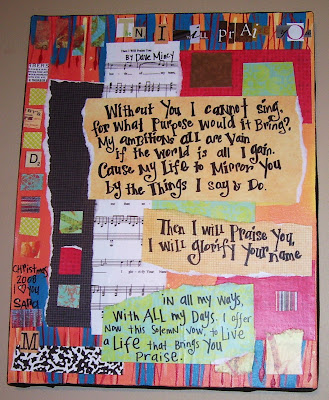 N I in prai YO
Then I Will Praise You
By Dave Mincy
Without You I cannot sing,
for what Purpose would it Bring?
My ambitions all are vain
if the world is all I gain.
Cause My Life to Mirror You
by the Things I say & Do.
D
Then I will Praise You,
I will glorify Your name
Christmas
2008
I ♥ you
Sara
in all my ways,
With ALL my Days. I offer
Now this Solemn Vow, to Live
a Life that Brings You
Praise.
M